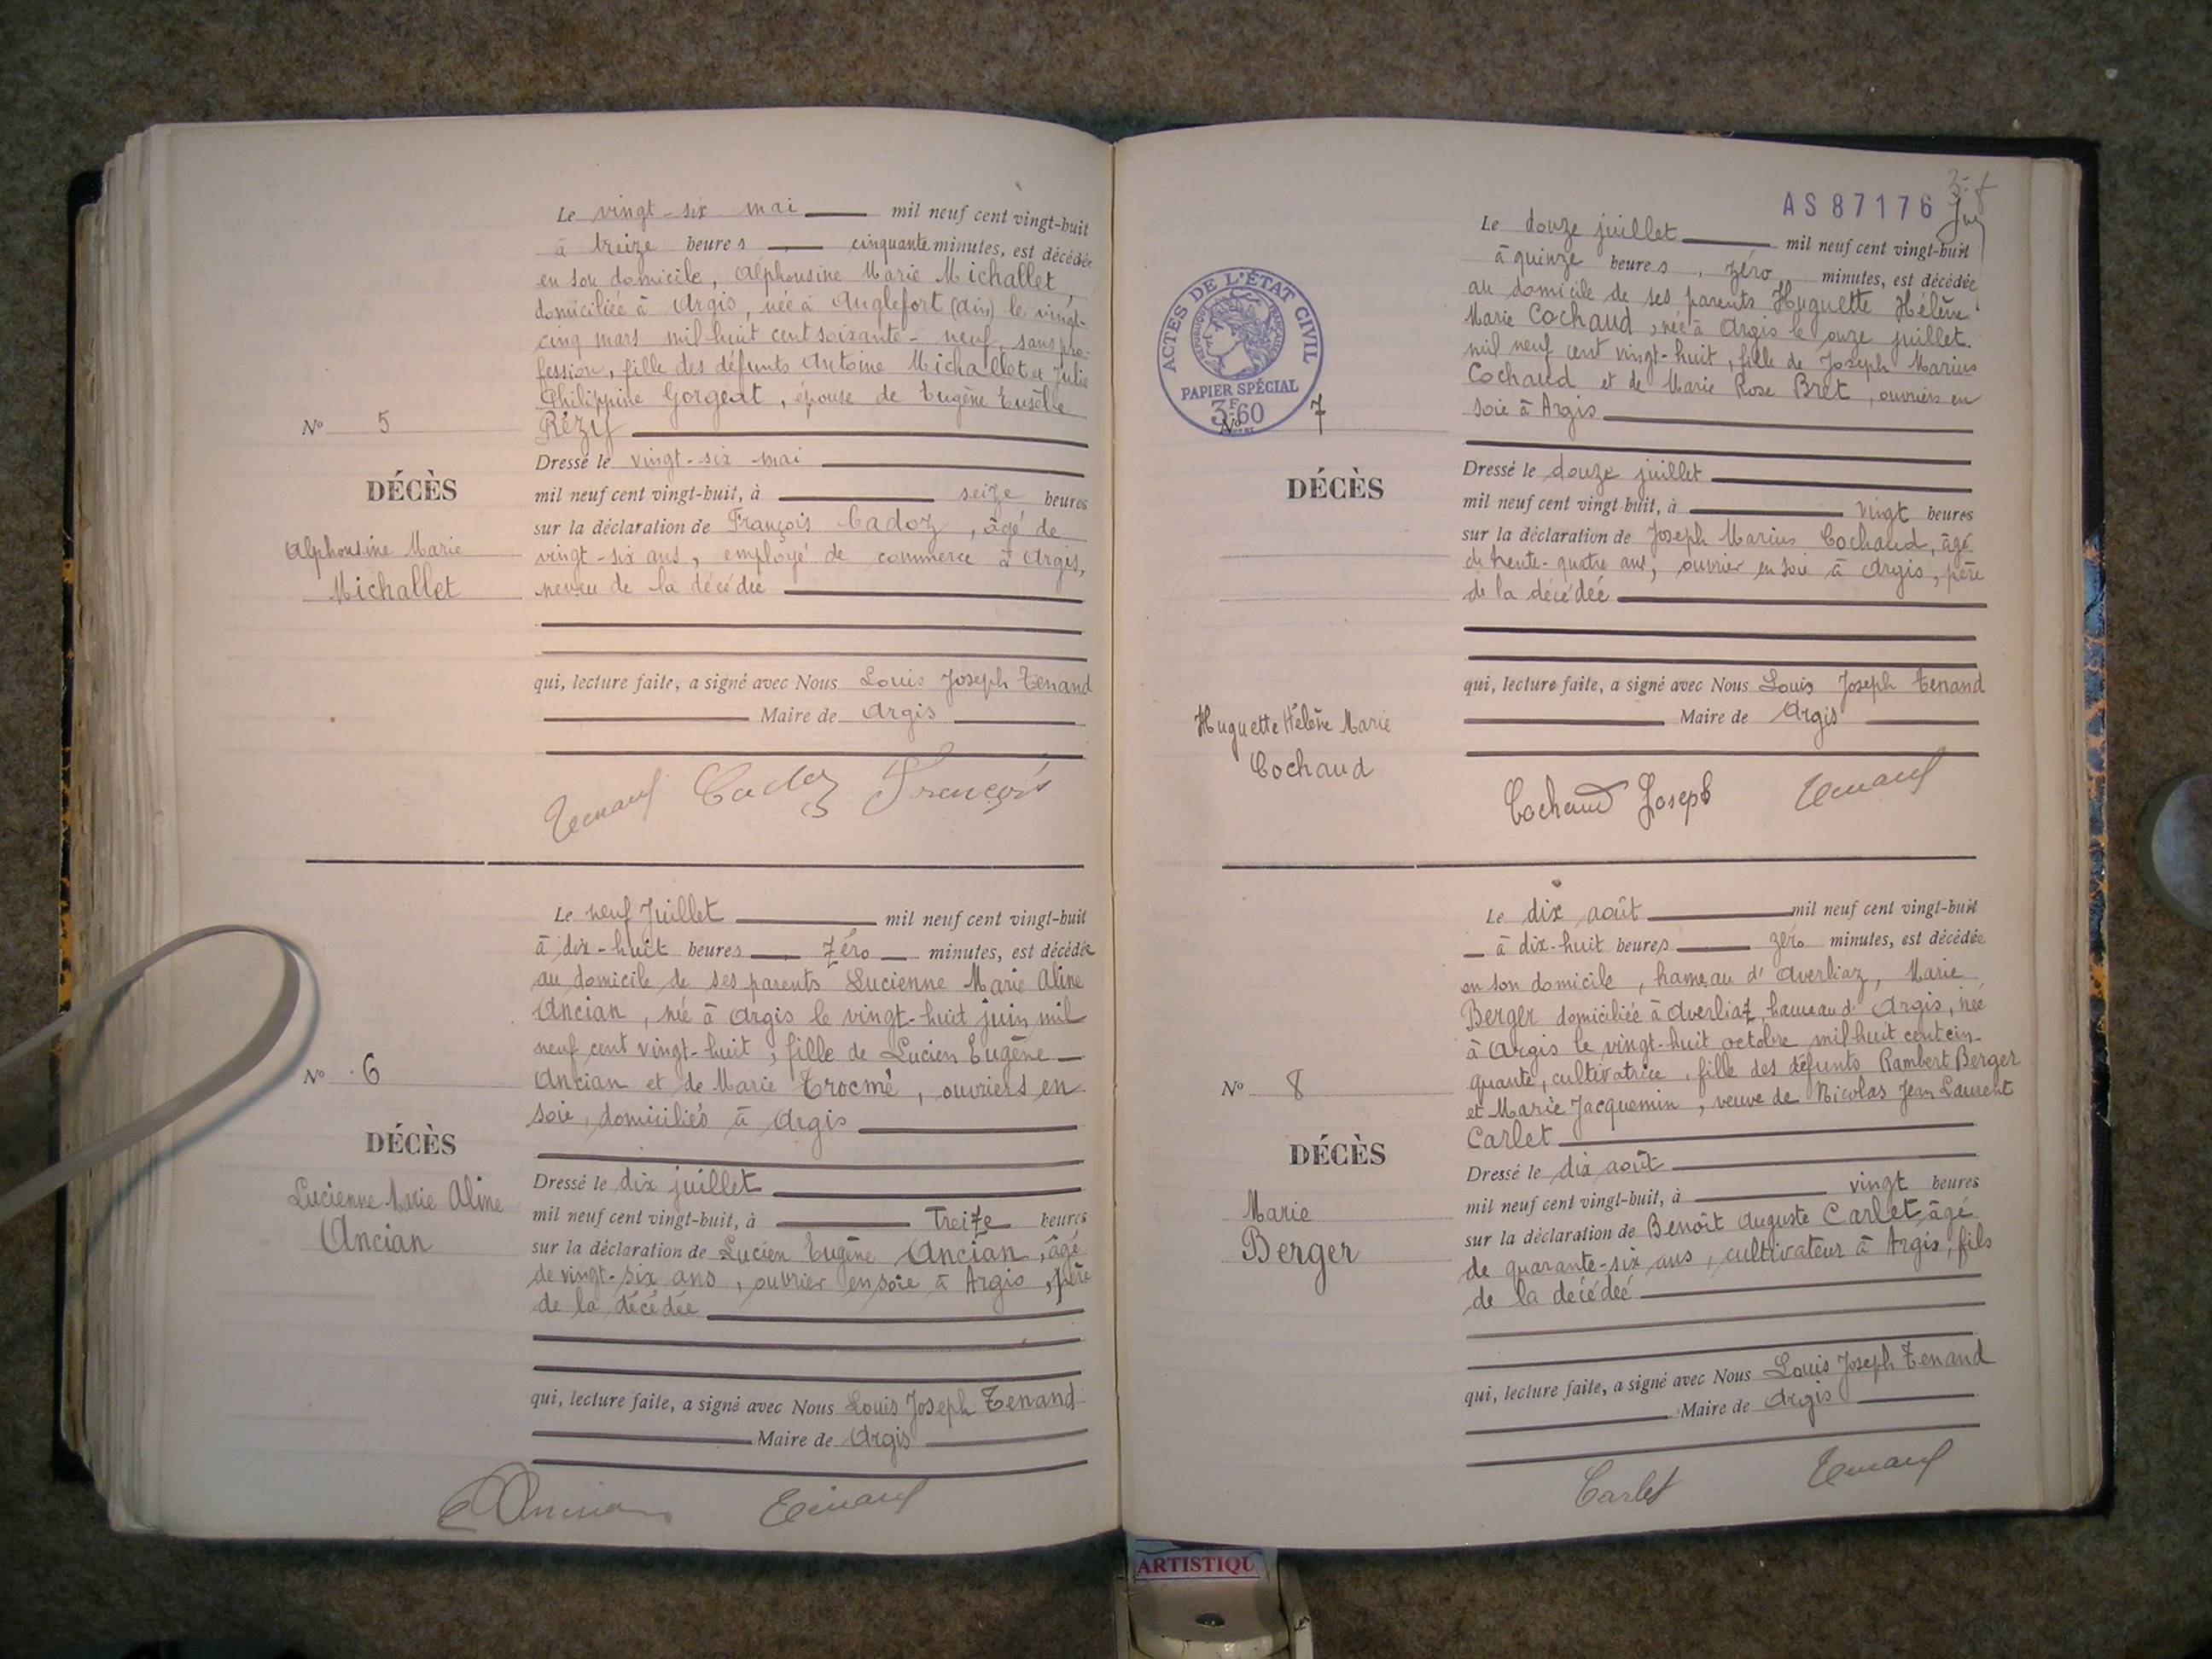 Le vingt-six mai mil neuf cent vingt-huit
à treize heures, cinquante minutes, est décédée
en son domicile, Alphonsine Marie Michallet,
domiciliée à Argis, née à Anglefort (Ain) le vingt-
cinq mars mil huit cent soixante-neuf, sans pro-
fession, fille des défunts Antoine Michallet et Julie
Philippine Gorgeat, épouse de Eugène Eusèbe
Rézy
Nº 5
DÉCÈS
Alphonsine Marie
Michallet
Dressé le vingt-six mai
mil neuf cent vingt-huit, à seize heures
sur la déclaration de François Cadoz, âgé de
vingt-six ans, employé de commerce à Argis,
neveu de la décédée
qui, lecture faite, a signé avec Nous Louis Joseph Tenand
Maire de Argis
Tenand Cadoz François
Le neuf Juillet mil neuf cent vingt-huit
à dix-huit heures, zéro minutes, est décédée
au domicile de ses parents Lucienne Marie Aline
Ancian, née à Argis le vingt-huit juin mil
neuf cent vingt-huit, fille de Lucien Eugène
Ancian et de Marie Trocmé, ouvriers en
soie, domiciliés à Argis
Nº 6
DÉCÈS
Lucienne Marie Aline
Ancian
Dressé le dix juillet
mil neuf cent vingt-huit, à Treize heures
sur la déclaration de Lucien Eugène Ancian, âgé
de vingt-six ans, ouvrier en soie à Argis, père
de la décédée
qui, lecture faite, a signé avec Nous Louis Joseph Tenand
Maire de Argis
Ancian Tenand
AS 87176
Le douze juillet mil neuf cent vingt-huit
à quinze heures, zéro minutes, est décédée
au domicile de ses parents Huguette Hélène
Marie Cochaud, née à Argis le onze juillet
mil neuf cent vingt-huit, fille de Joseph Marius
Cochaud et de Marie Rose Bret, ouvriers en
soie à Argis
ACTES DE L'ÉTAT CIVIL
RÉPUBLIQUE FRANÇAISE
PAPIER SPÉCIAL
3F60
Nº 7
DÉCÈS
Huguette Hélène Marie
Cochaud
Dressé le douze juillet
mil neuf cent vingt-huit, à vingt heures
sur la déclaration de Joseph Marius Cochaud, âgé
de trente-quatre ans, ouvrier en soie à Argis, père
de la décédée
qui, lecture faite, a signé avec Nous Louis Joseph Tenand
Maire de Argis
Cochaud Joseph Tenand
Le dix août mil neuf cent vingt-huit
à dix-huit heures zéro minutes, est décédée
en son domicile, hameau d'Averliaz, Marie
Berger domiciliée à Averliaz, hameau d'Argis, née
à Argis le vingt-huit octobre mil huit cent cin-
quante, cultivatrice, fille des défunts Rambert Berger
et Marie Jacquemin, veuve de Nicolas Jean Laurent
Carlet
Nº 8
DÉCÈS
Marie
Berger
Dressé le dix août
mil neuf cent vingt-huit, à vingt heures
sur la déclaration de Benoît Auguste Carlet, âgé
de quarante-six ans, cultivateur à Argis, fils
de la décédée
qui, lecture faite, a signé avec Nous Louis Joseph Tenand
Maire de Argis
Carlet Tenand
ARTISTIQU